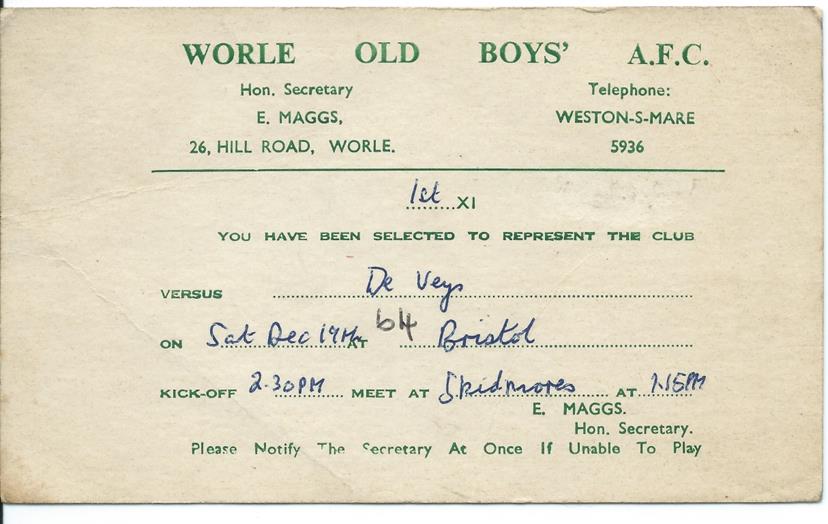 WORLE OLD BOYS' A.F.C.
Hon. Secretary Telephone:
E. MAGGS, WESTON-S-MARE
26, HILL ROAD, WORLE. 5936
1st XI
YOU HAVE BEEN SELECTED TO REPRESENT THE CLUB
VERSUS De Veys
ON Sat Dec 19th 64 AT Bristol
KICK-OFF 2.30PM MEET AT Skidmores AT 1.15PM
E. MAGGS.
Hon. Secretary.
Please Notify The Secretary At Once If Unable To Play